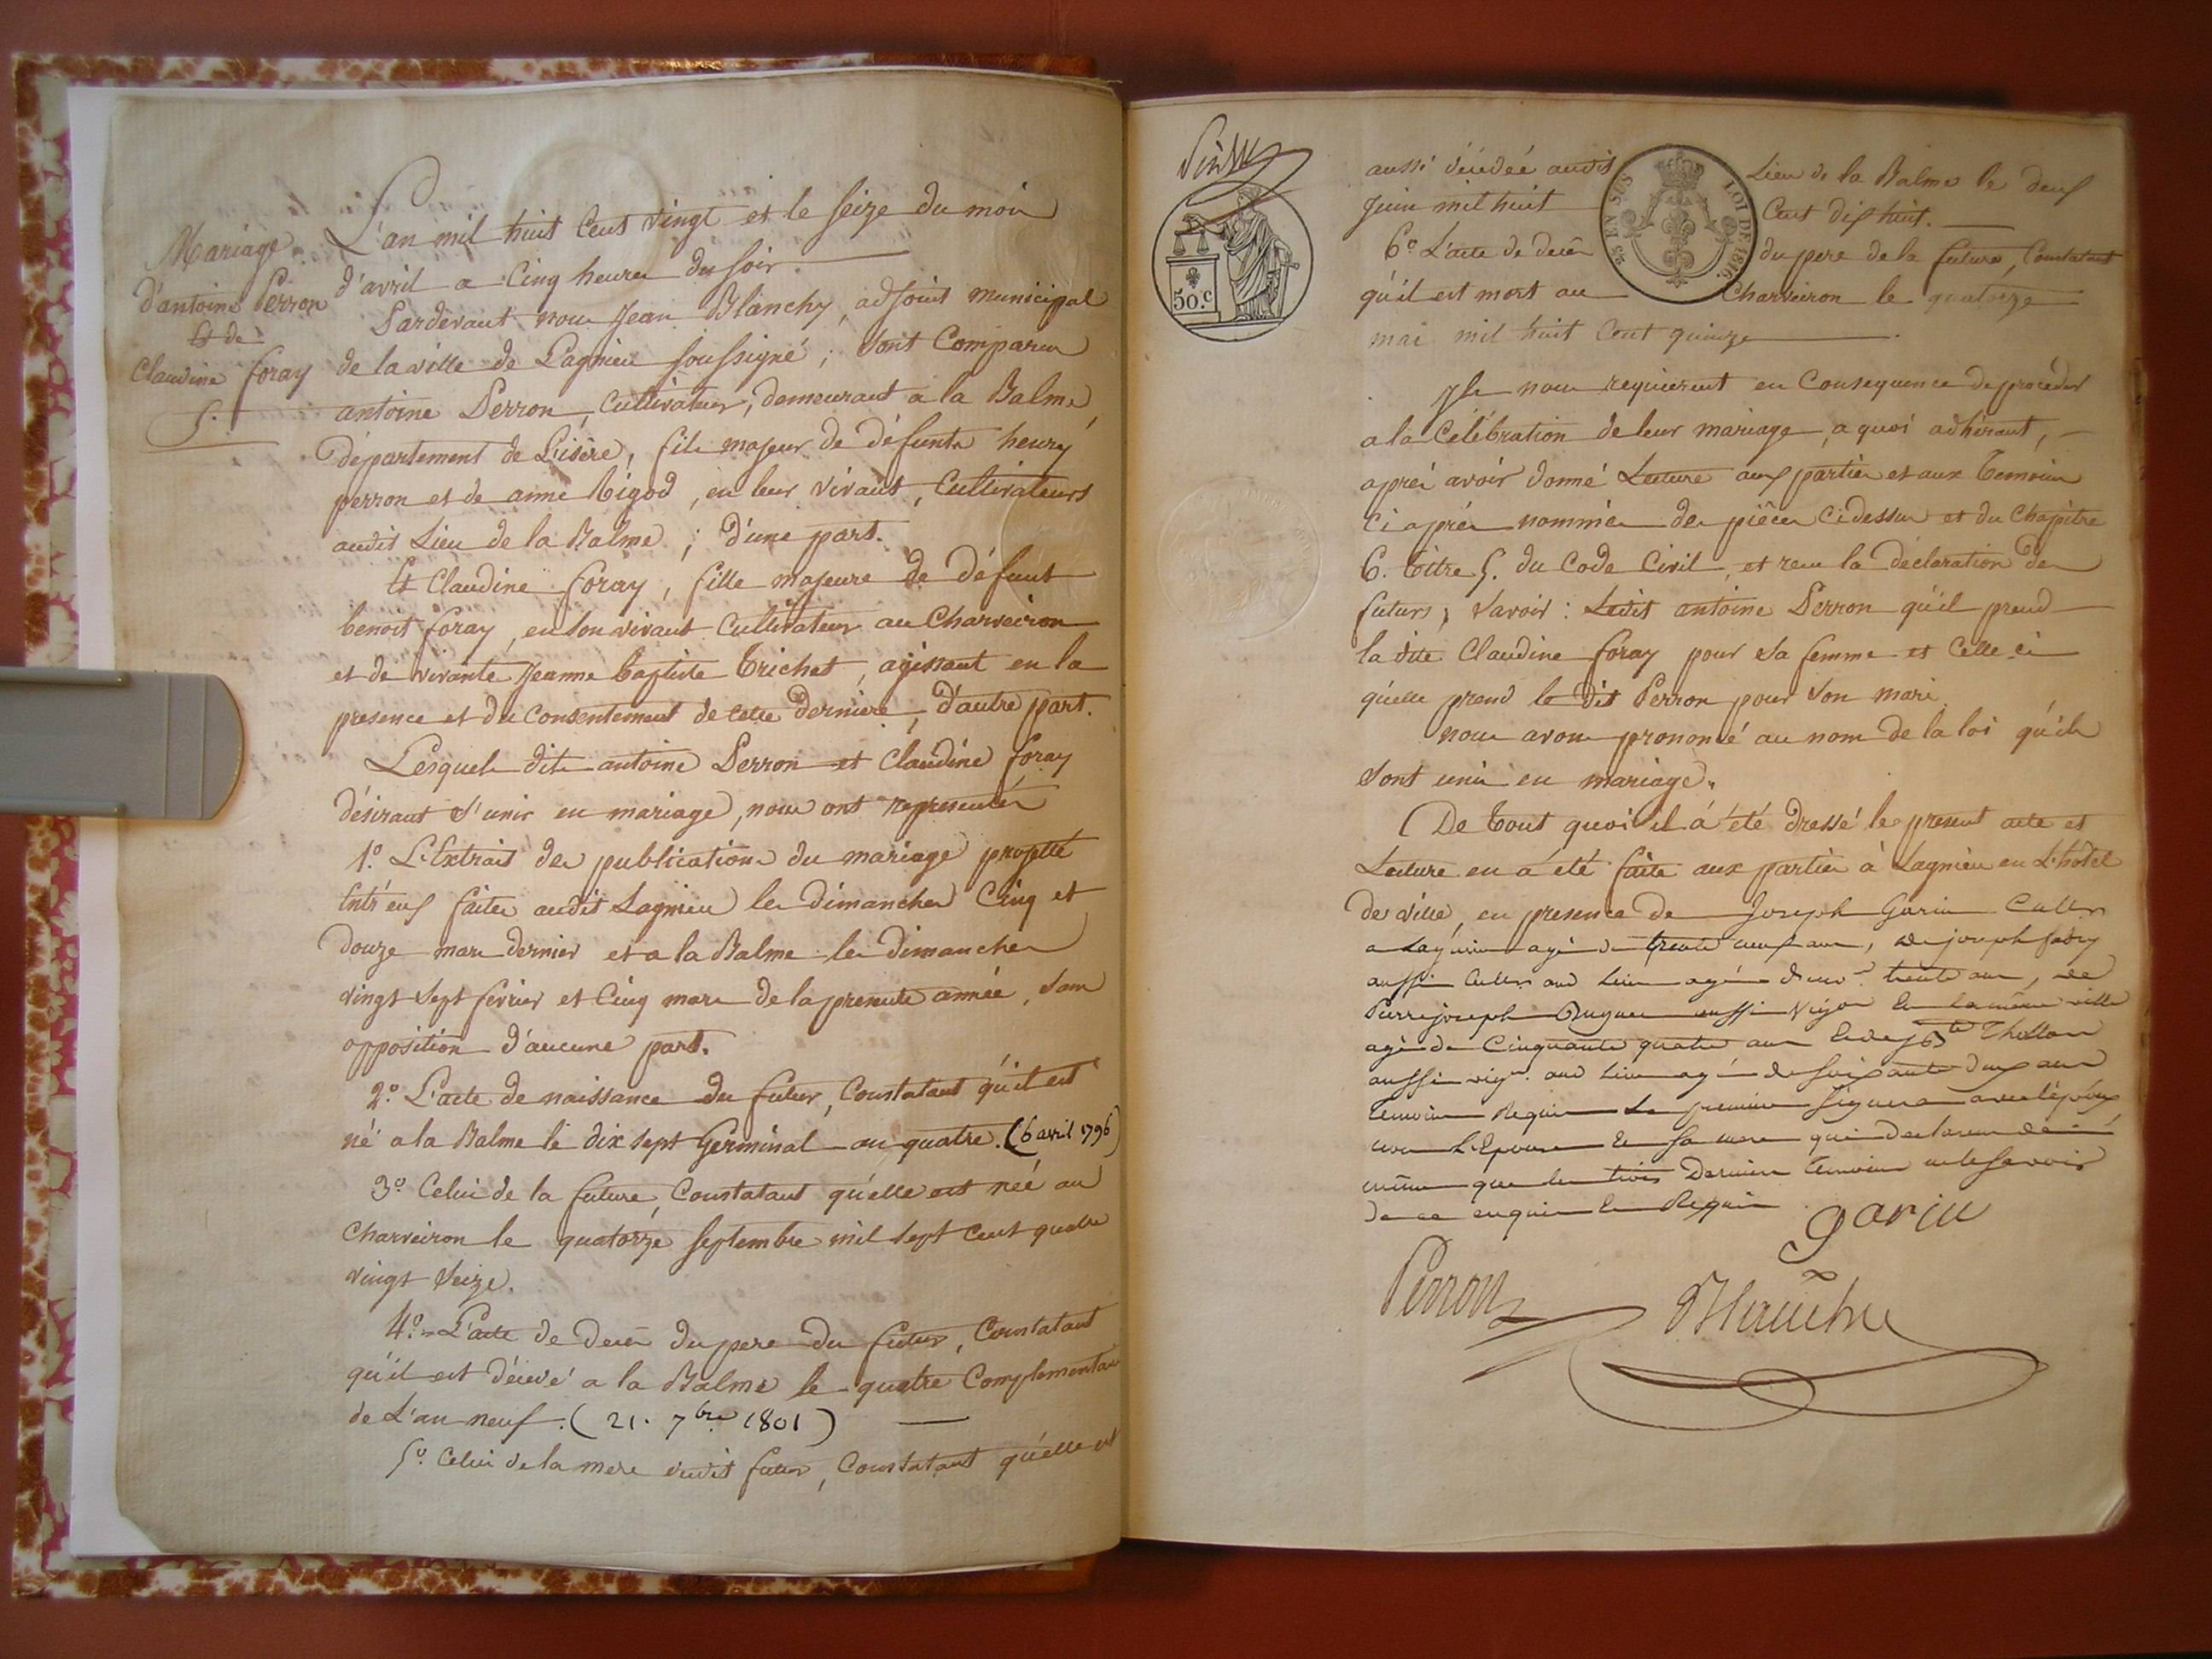 Mariage
d'antoine Perron
Et de
Claudine foray
5.
L'an mil huit Cent vingt et le seize du mois
d'avril a Cinq heures du soir.
Pardevant nous Jean Blanchy, adjoint municipal
de la ville de Lagnieu soussigné ; sont Comparus
antoine Perron, Cultivateur, demeurant a la Balme,
département de L'isère, fils majeur de défunts henry
perron et de anne Rigod, en leur vivant, Cultivateurs
audit Lieu de la Balme ; d'une part.
Et Claudine foray, fille majeure de défunt
benoit foray, en son vivant Cultivateur au Charveiron
et de vivante Jeanne baptiste Trichet, agissant en la
presence et du Consentement de cette derniere, d'autre part.
Lesquels dits antoine Perron et Claudine foray
désirant s'unir en mariage, nous ont representés
1.º L'Extrait des publications du mariage projetté
Entr'eux faites audit Lagnieu les dimanches Cinq et
douze mars dernier et a la Balme les dimanches
vingt sept fevrier et Cinq mars de la presente année, sans
opposition d'aucune part.
2.º L'acte de naissance du futur, Constatant qu'il est
né a la Balme le dix sept Germinal an quatre. (6 avril 1796)
3.º Celui de la future, Constatant qu'elle est née au
Charveiron le quatorze septembre mil sept Cent quatre
vingt Seize.
4.º L'acte de decès du pere du futur, Constatant
qu'il est décédé a la Balme le quatre Complementaire
de L'an neuf. (21. 7bre 1801)
5.º Celui de la mere dudit futur, Constatant qu'elle est
50.C
25 EN SUS
LOI DE 1816.
aussi décédée audit Lieu de la Balme le deux
Juin mil huit Cent dix huit.
6.º L'acte de decès du pere de la future, Constatant
qu'il est mort au Charveiron le quatorze
mai mil huit Cent quinze
Ils nous requierent en Consequence de procéder
a la Célébration de leur mariage, a quoi adhérant,
après avoir donné Lecture aux parties et aux Temoins
Ci après nommés des pièces Cidessus et du Chapitre
6. Titre 5. du Code Civil, et reçu la déclaration des
futurs ; Savoir : Ledit antoine Perron qu'il prend
la dite Claudine foray pour sa femme et Celle ci
qu'elle prend le dit Perron pour son mari.
nous avons prononcé au nom de la loi qu'ils
sont unis en mariage.
De Tout quoi il a été dressé le present acte et
Lecture en a été faite aux parties à Lagnieu en L'hôtel
de ville, en presence de Joseph Garin Cultr
a Lagnieu agé de trente neuf ans, de joseph
aussi Cultr aud Lieu agé trente ans, de
Pierre joseph aussi Vigon la même ville
agé de Cinquante quatre ans Thollon
aussi vign. aud Lieu agé de soixante deux ans
Temoins Requis Le premier signera avec l'époux
non L'Epouse & sa mere qui declarent de
même que les trois Derniers Temoins ne le savoir
de ce enquis & Requis
Garin
Perron
Blanchy